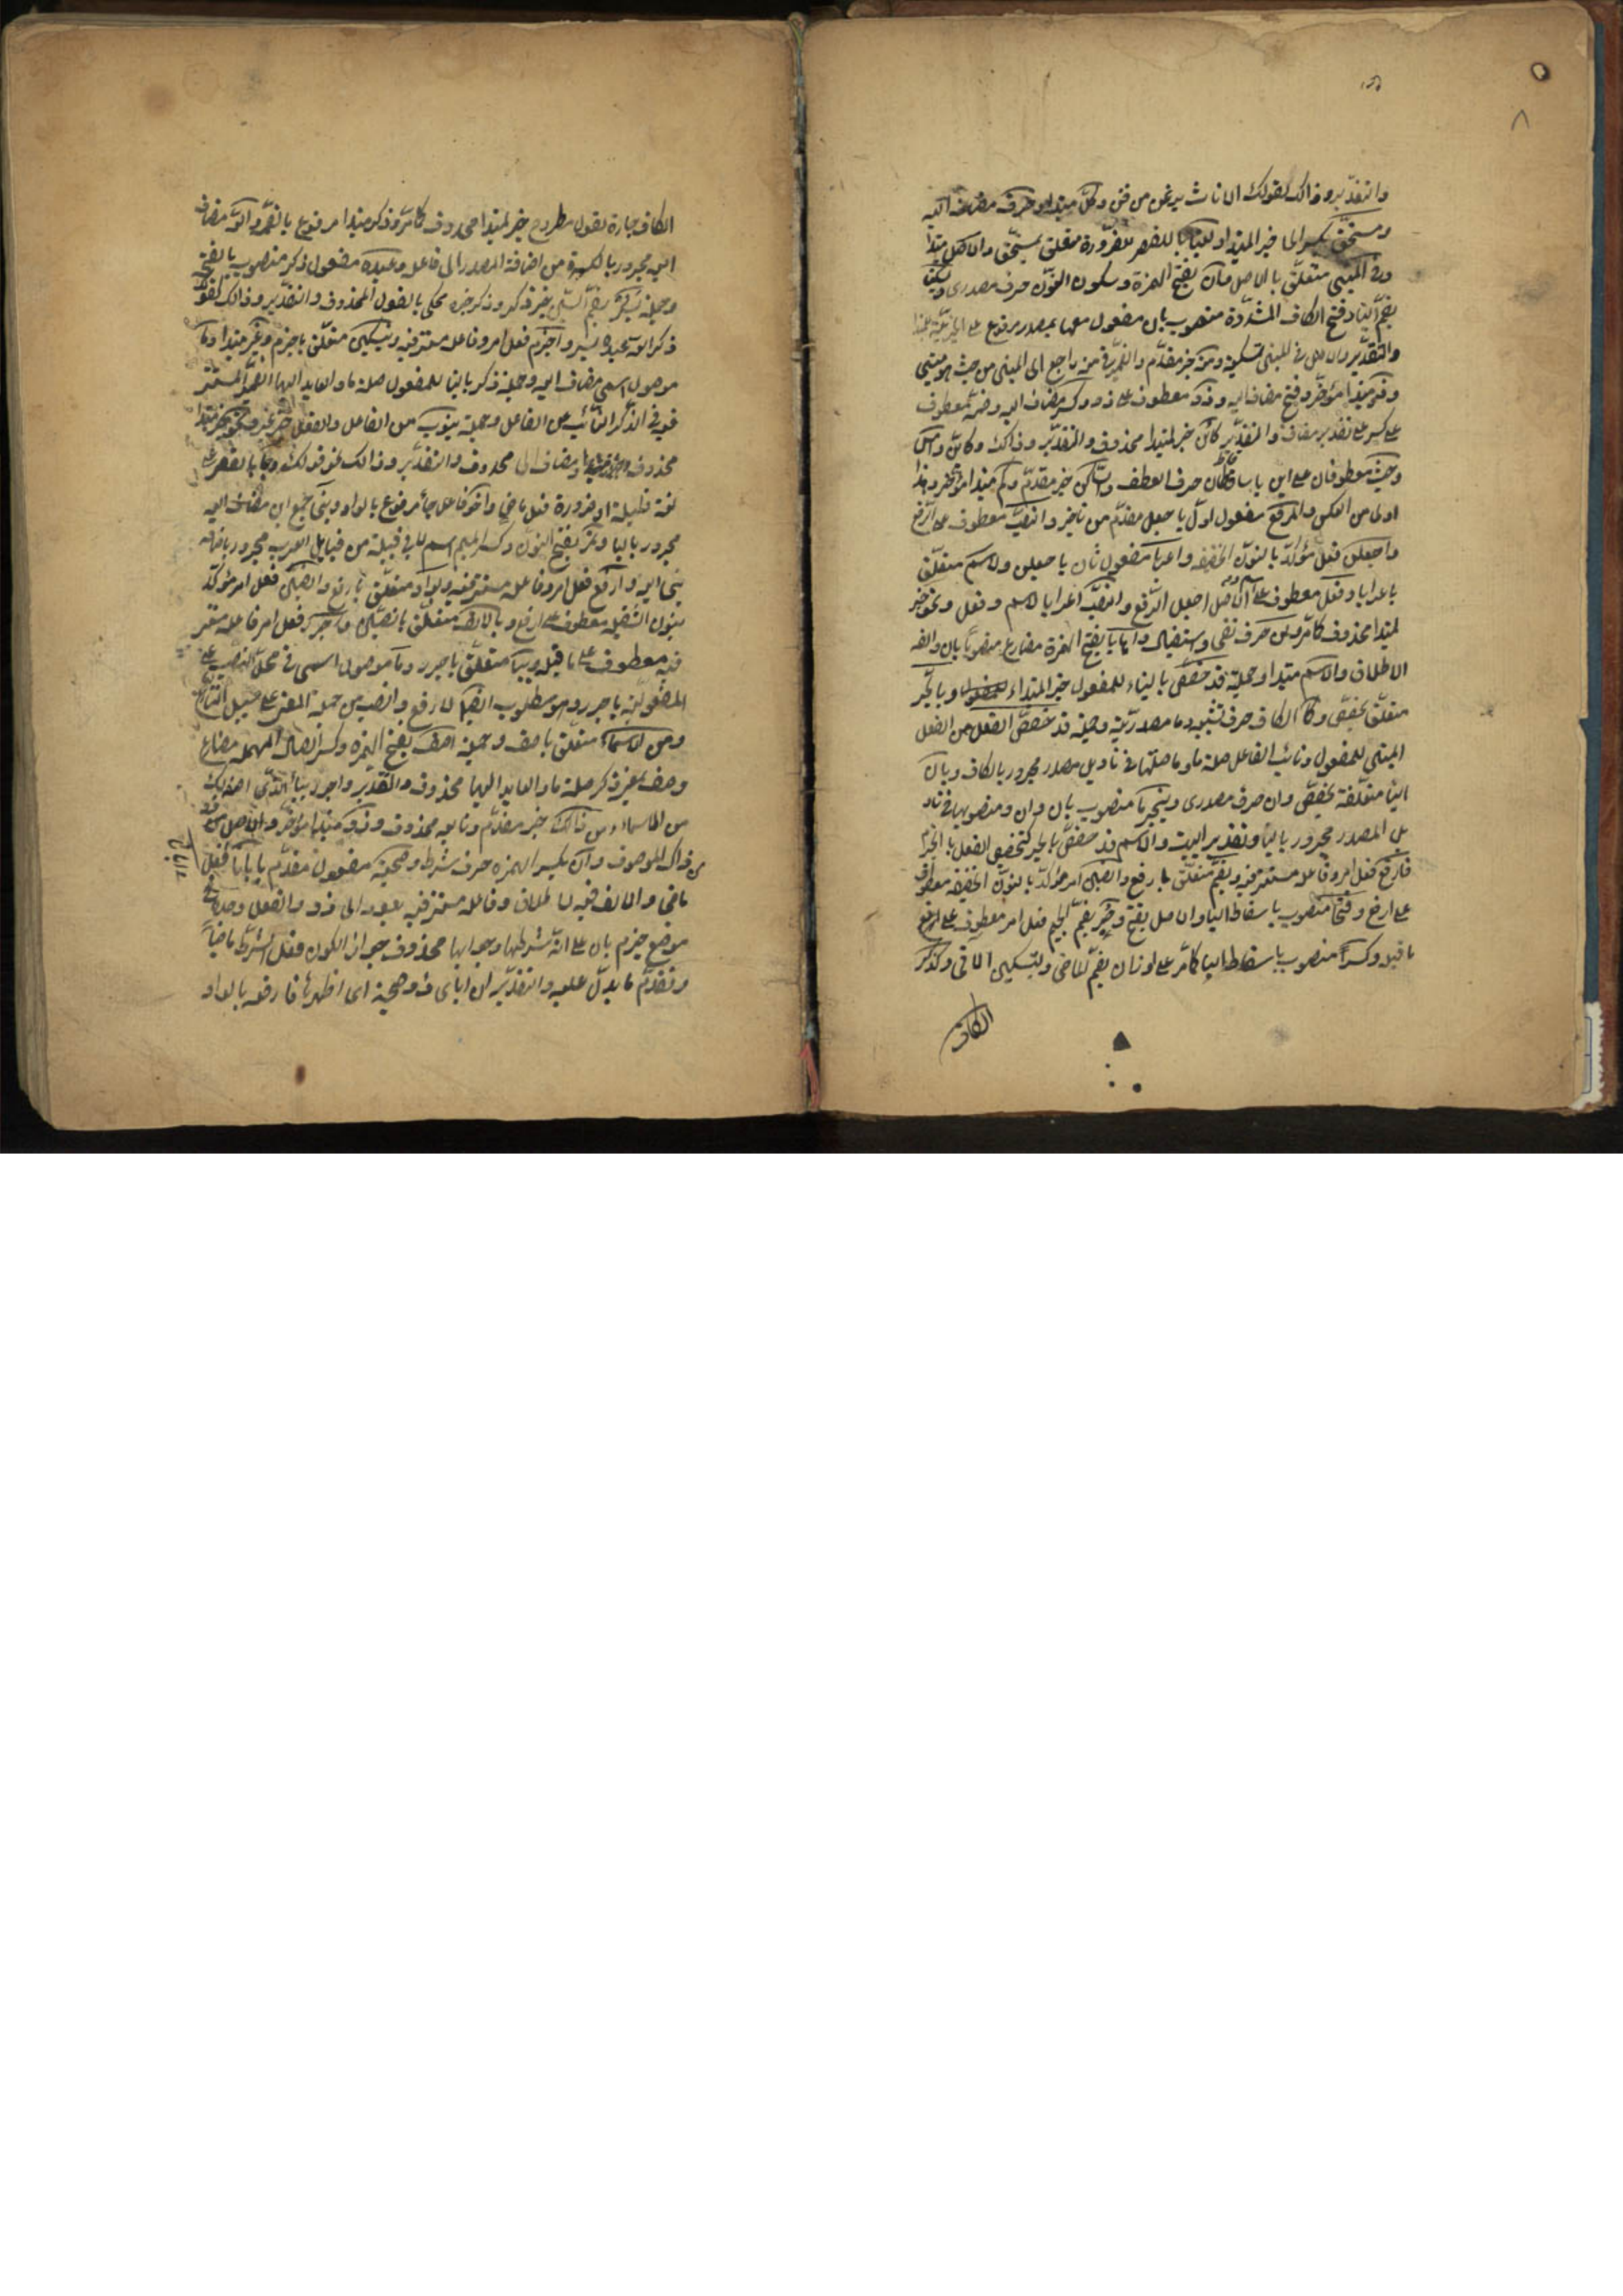 والتقدير وذالك كقولك الاناث يرعن من فتن وكل مبتدا وحرف مضاف اليه
ومستحق خبر المبتدا وللبنا بالقصر للضرورة متعلق بمستحق والاصل مبتدا
وفى المبنى متعلق بالاصل وان بفتح الهمزة وسكون النون حرف مصدرى ويسكنا
بضم اليا وفتح الكاف المشددة منصوب بان مفعول معها بمصدر مرفوع على الخبرية للمبتدا
والتقدير والاصل فى المبنى تسكينه ومنه خبر مقدم والضمير فى منه راجع الى المبنى من حيث هو مبنى
وذو مبتدا مؤخر وفتح مضاف اليه وذو معطوف على ذو وكسر مضاف اليه وضم معطوف
على كسر على تقدير مضاف والتقدير كائن خبر لمبتدا محذوف والتقدير وذالك وكاين وامس
وحيث معطوفان على اين باسقاط حرف العطف والساكن خبر مقدم وكم مبتدا مؤخر وهذا
اولى من العكس والرفع مفعول اول باجعلن مقدم من تاخير والنصب معطوف على الرفع
واجعلن فعل مؤكد بالنون الخفيفه واعرابا مفعول ثان باجعلن ولاسم متعلق
باعرابا وفعل معطوف على اسم والاصل اجعل الرفع والنصب اعرابا لاسم وفعل ونحو خبر
لمبتدا محذوف كما مر ولن حرف نفى واستقبال واهابا بفتح الهمزة مضارع منصوبا بلن والفه
الاطلاق والاسم مبتدا وجملة قد خصص بالبناء للمفعول خبر المبتداء وبالجر
متعلق بخصص وكما الكاف حرف تشبيه وما مصدرية وجملة قد خصص الفعل من الفعل
المبنى للمفعول ونائب الفاعل صلة ما وما صلتها فى تاويل مصدر مجرور بالكاف وبان
اليا متعلقة بخصص وان حرف مصدرى وينجزما منصوب بان وان ومنصوبها فى تاو
يل المصدر مجرور باليا وتقدير البيت والاسم قد خصص بالجر كتخصيص الفعل بالجزم
فارفع فعل امر وفاعله مستتر فيه وبضم متعلق بارفع وانصبن امر مؤكد بالنون الخفيفه معطوف
على ارفع وفتحا منصوب باسقاط اليا والاصل بفتح وجر بضم الجيم فعل امر معطوف على ارفع
ما قبله وكسرا منصوب باسقاط اليا كما مر على اوزان بضم الماضى وبتسكين الاتى وكذكر
الكاف
الكاف جارة لقول مطروح خبر لمبتدا محذوف كما مر وذكر مبتدا مرفوع بالضم والله مضاف
اليه مجرور بالكسرة من اضافة المصدر الى فاعله وعبده مفعول ذكر منصوب بالفتحة
وجملة يسر بضم السين خبر ذكر وذكر خبره محكى بالقول المحذوف والتقدير وذالك كقولك
ذكر الله عبده يسر واجزم فعل امر وفاعله مستتر فيه وبتسكين متعلق باجزم وغير مبتدا وما
موصول اسمى مضاف اليه وجملة ذكر بالبنا للمفعول صلة ما والعايد اليها الضمير المستتر
فيه فى الذكر النائب عن الفاعل وجملة ينوب من الفاعل والفعل خبر غير ونحو خبر مبتدا
محذوف ومضاف الى محذوف والتقدير وذالك نحو قولك وجا بالقصر على
لغة قليلة او ضرورة فعل ماض واخو فاعل جا مرفوع بالواو وبنى جمع ابن مضاف اليه
مجرور باليا ونمر بفتح النون وكسر الميم اسم لابى قبيلة من قبايل العرب مجرور باضافة
بنى اليه وارفع فعل امر وفاعله مستتر فيه وبواو متعلق بارفع وانصبن فعل امر مؤكد
بنون الثقيله معطوف على ارفع وبالالف متعلق بانصبن واجرر فعل امر فاعله مستتر
فيه معطوف على ما قبله وبيا متعلق باجرر وما موصول اسمى فى محل النصب على
المفعولية باجرر وهو مطلوب ايضا لارفع وانصب من جملة المعنى على سبيل التنازع
ومن الاسماء متعلق باصف وجملة اصف بفتح الهمزة وكسر الصاد المهمله مضارع
وصف بمعنى ذكر صلة ما والعايد اليها محذوف والتقدير واجرر بيا الذى اصفه لك
من الاسماء ومن ذالك خبر مقدم وتابعه محذوف وذو مبتدا مؤخر والاصل ذو
من ذاك الموصوف وان بكسر الهمزه حرف شرط وصحبة مفعول مقدم بابانا فعل
ماض والالف فيه للاطلاق وفاعله مستتر فيه يعود الى ذو والفعل وصلته فى
موضع جزم بان على انه شرطها وجوابها محذوف جواز الكون فعل الشرط ماضيا
وتقدم ما يدل عليه والتقدير ان ابان ذو صحبة اى اظهرها فارفعه بالواو